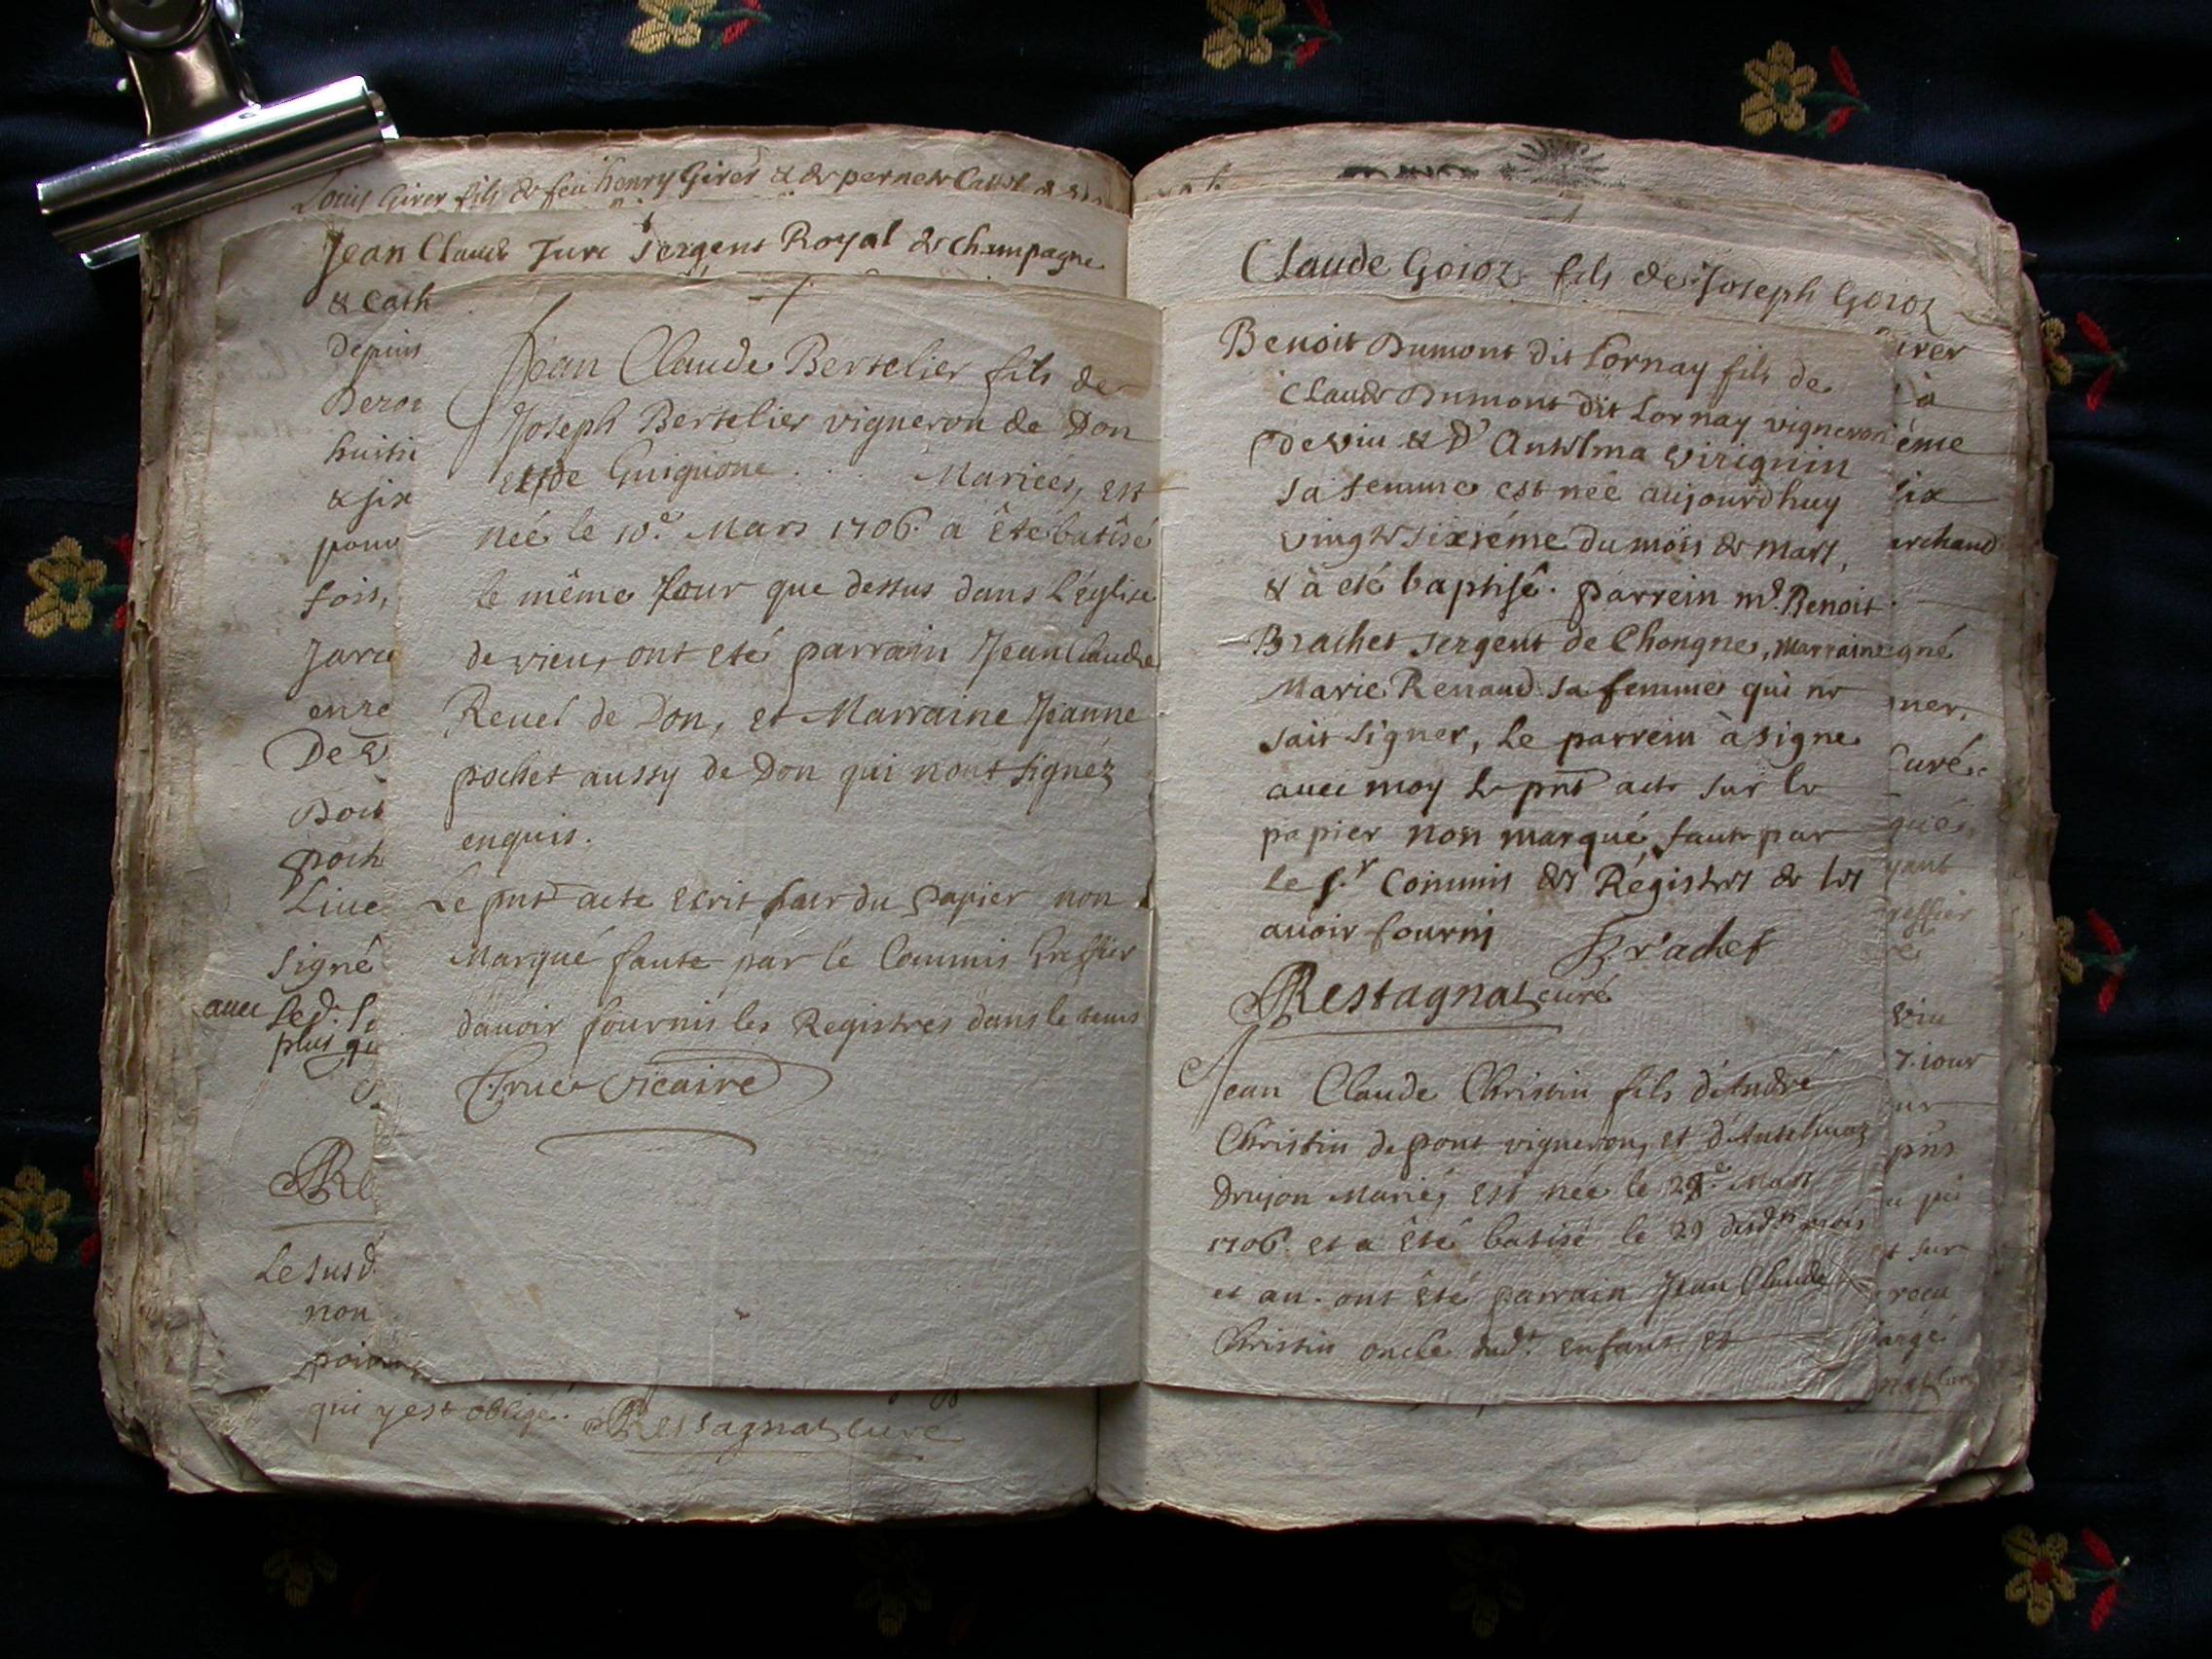 Louis Girer fils de feu henry Girer & de pernete
Jean Claude Jure Sergent Royal de champagne
& Cath
Depuis
Deroe
huitie
& six
pour
fois,
Jarc
enre
De v
Doit
poch
Liue
signé
auec led. s
plus qu
Re
Le susd.
non
qui y est obligé. Restagnat curé
Jean Claude Bertelier fils de
Joseph Bertelier vigneron de Don
et de Guiguone . . Mariés, est
née le 10e. Mars 1706. a été batisé
le même Jour que dessus dans L'église
de vieu, ont eté parrain Jean Claude
Reuel de Don, et Marraine Jeanne
pochet aussy de Don qui n'ont signéz
enquis.
Le pnt acte ecrit sur du papier non
Marqué faute par le Commis Greffier
d'auoir fournis les Registres dans le tems
vicaire
Claude Goioz fils de Joseph Goioz
Benoit Dumont dit Lornay fils de
Claude Dumont dit Lornay vigneron
de viu & D' Antelma virignin
sa femme est neé aujourdhuy
vingte sixiéme du mois de Mars,
& à eté baptisé. parrein md. Benoit
Brachet sergent de Chongnes, Marraine
Marie Renaud sa femme qui ne
sait signer, Le parrein à signe
auec moy le pnt acte sur le
papier non marqué faute par
le s.r Commis des Régistres de les
auoir fourni
Brachet
Restagnat curé
Jean Claude Christin fils d'André
Christin de pont vigneron, et d'Antelmaz
Drujon Mariés est née le 28e. Mars
1706. et a été batisé le 29 dud.t mois
et an. ont été parrain Jean Claude
Christin oncle dud.t enfant et
irer
à
ème
six
archand
gné
ner,
Curé.
qué,
yant
greffier
viu
7. iour
ur
pns
t sur